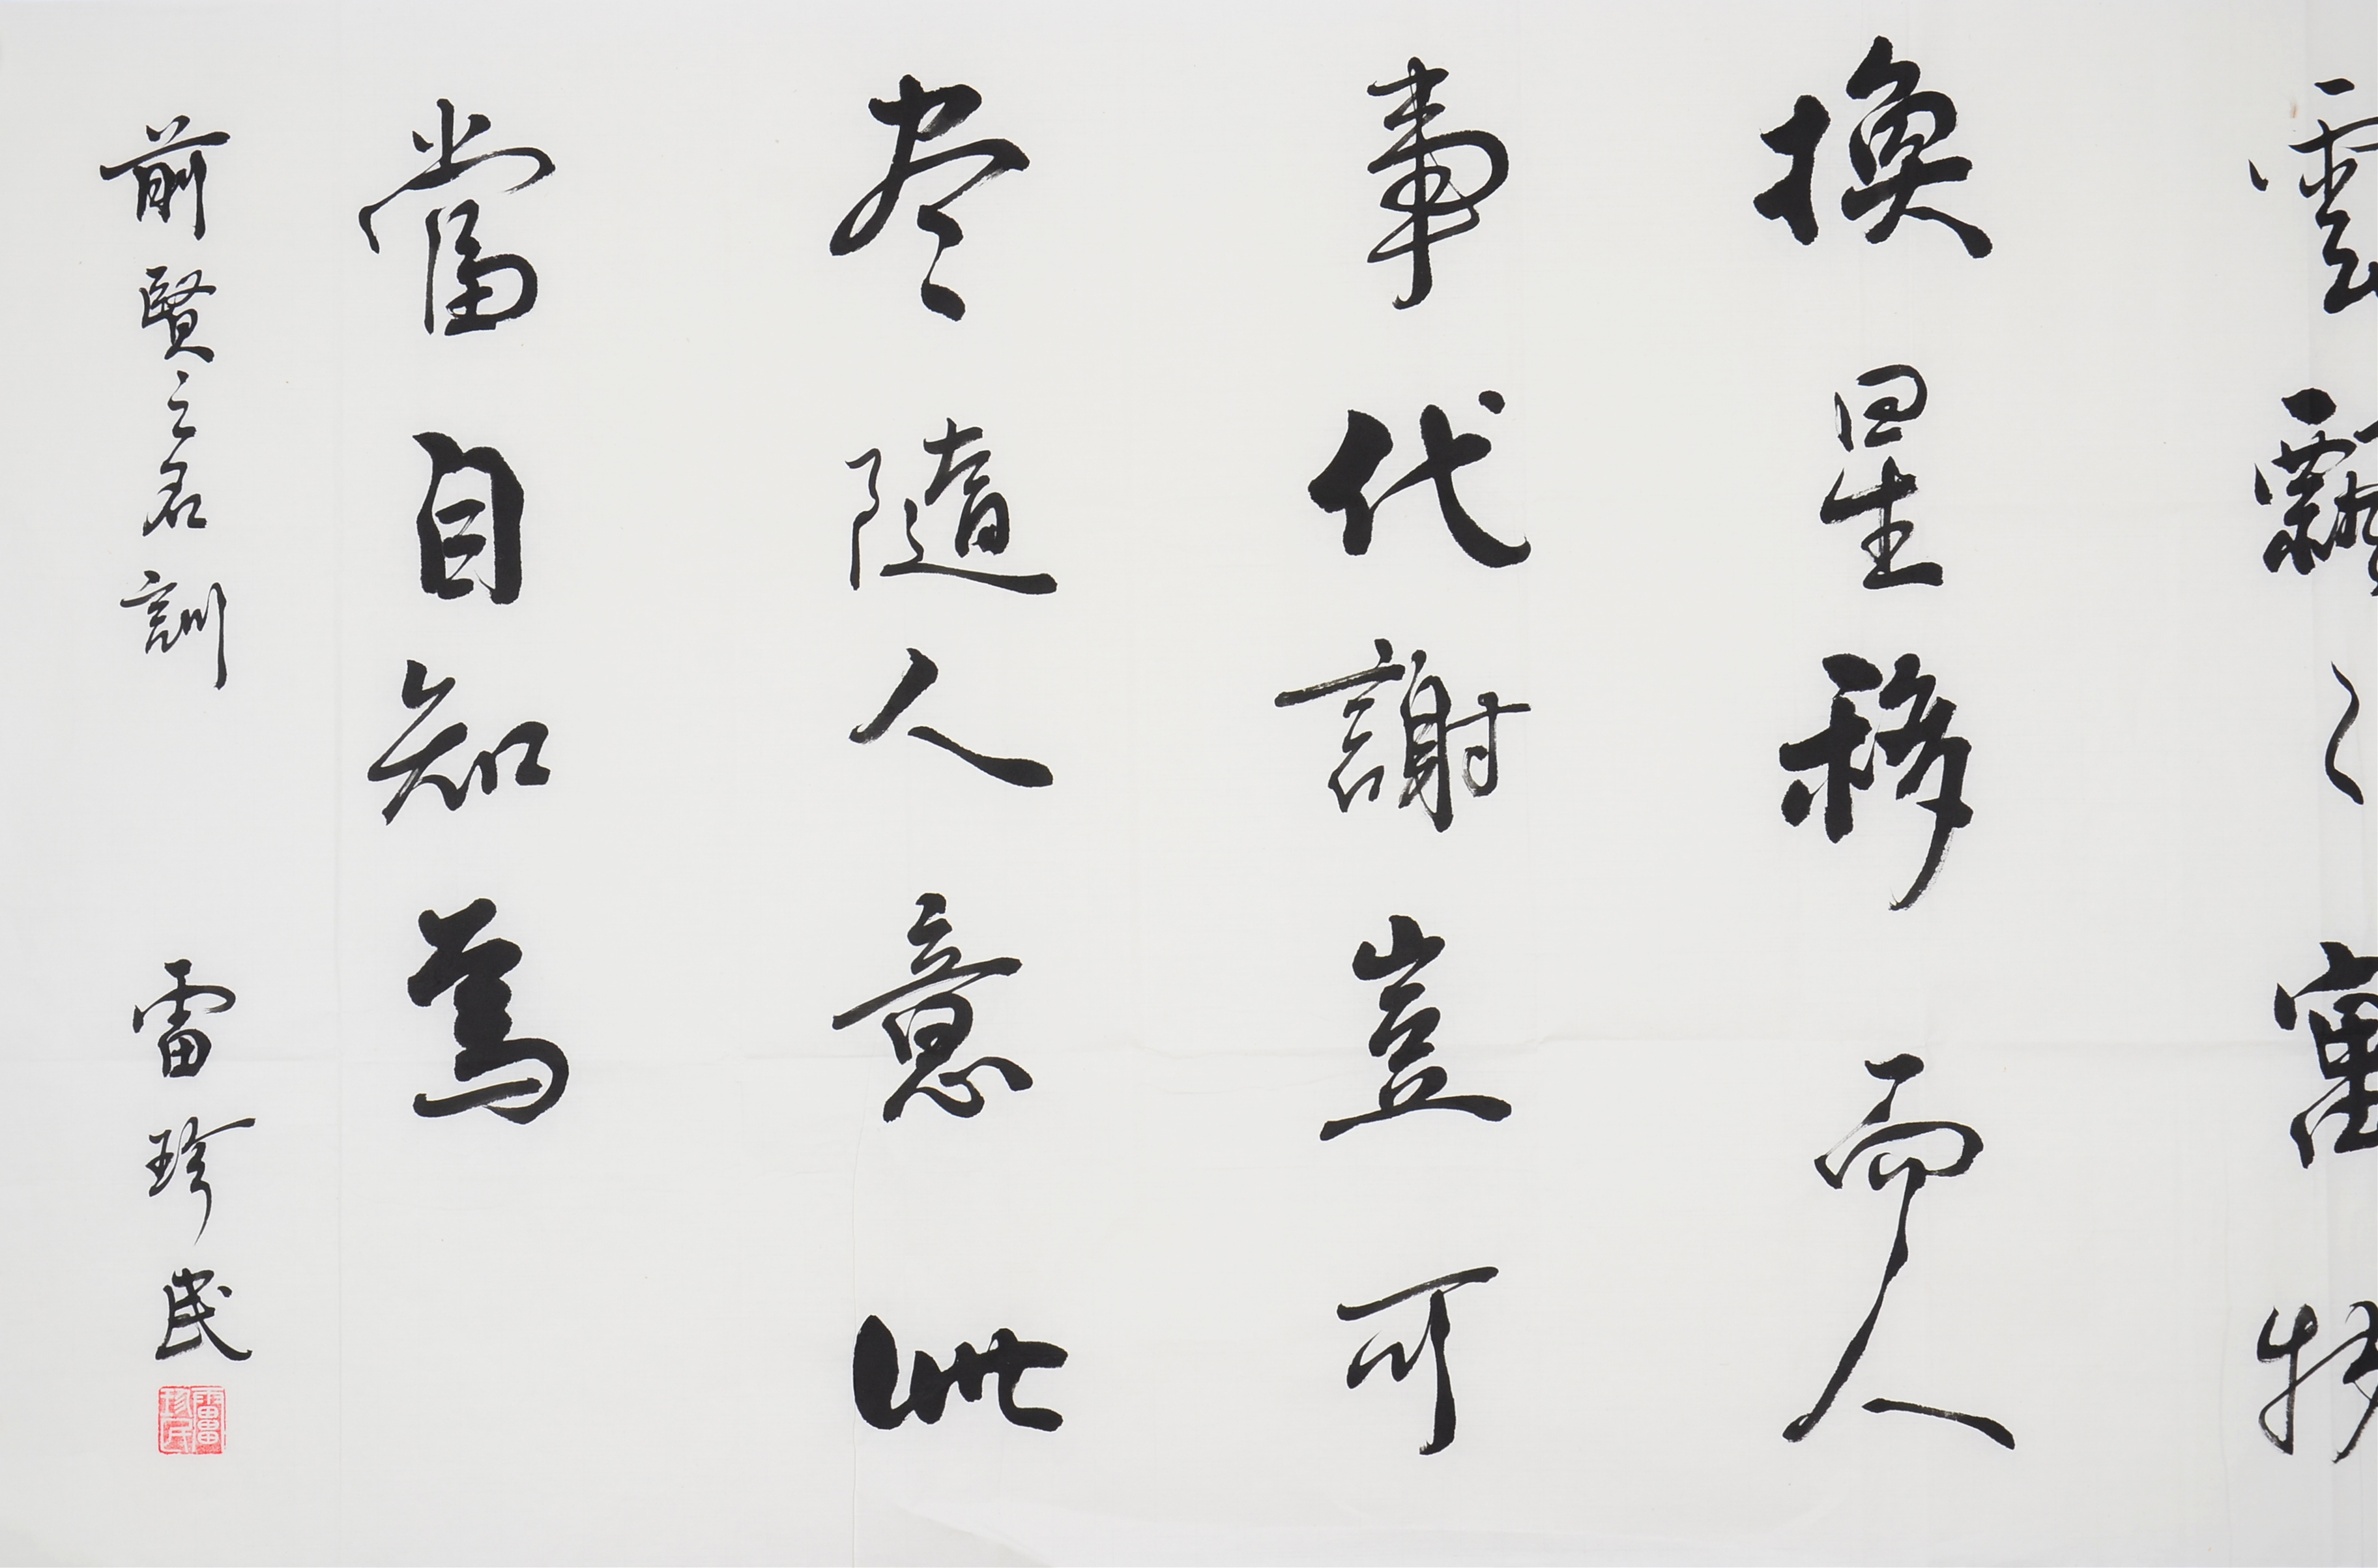 雲 物
換星移而人
事代謝豈可
尽隨人意此
當自知焉
前賢之名訓 雷珍民
雷珍民